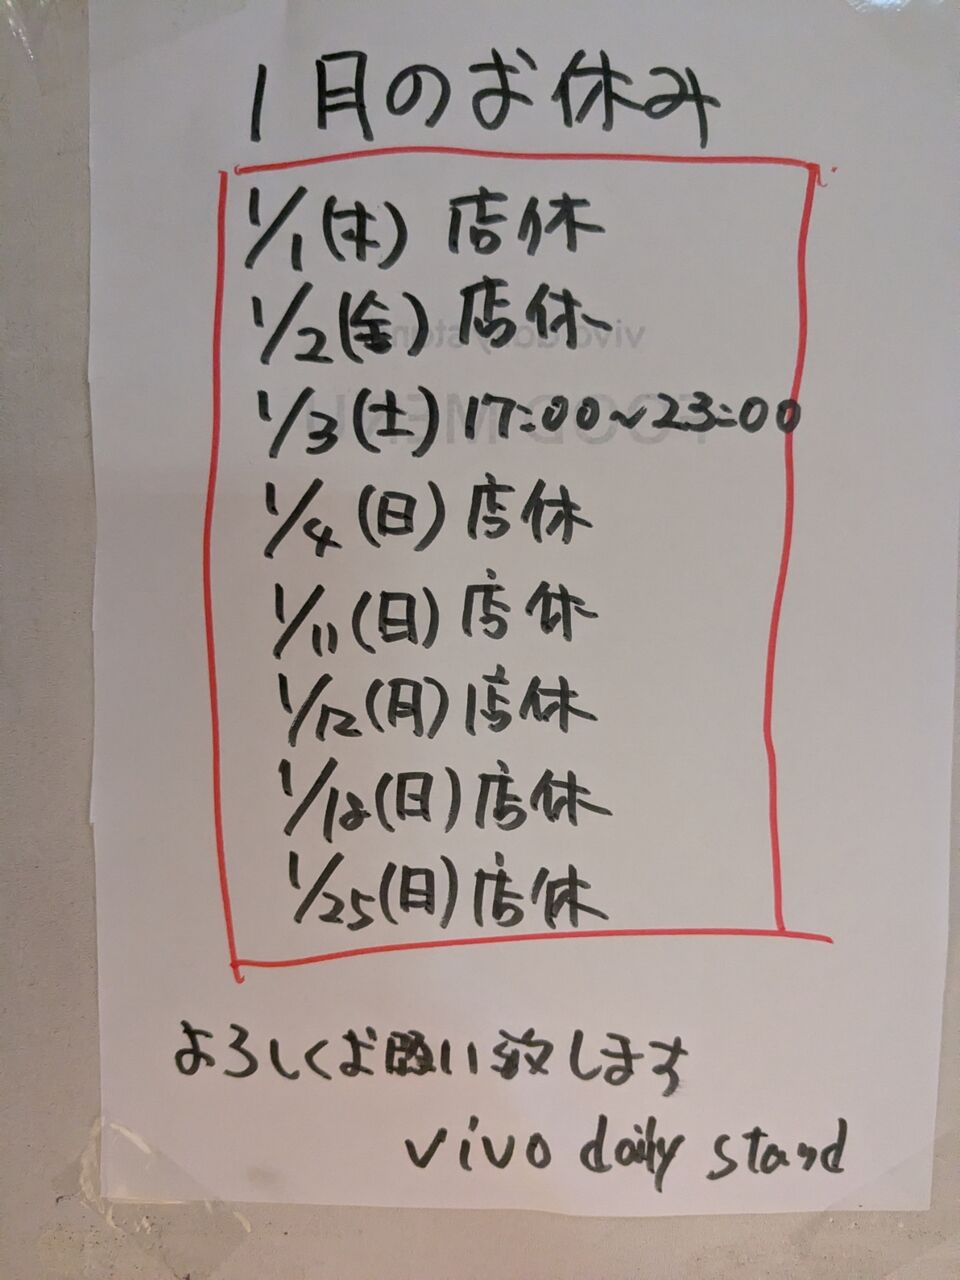 1月のお休み
1/1(木) 店休
1/2(金) 店休
1/3(土) 17:00~23:00
1/4(日)店休
1/11(日)店休
1/12(月)店休
1/18(日)店休
1/25(日)店休
よろしくお願い致します
vivo daily stand